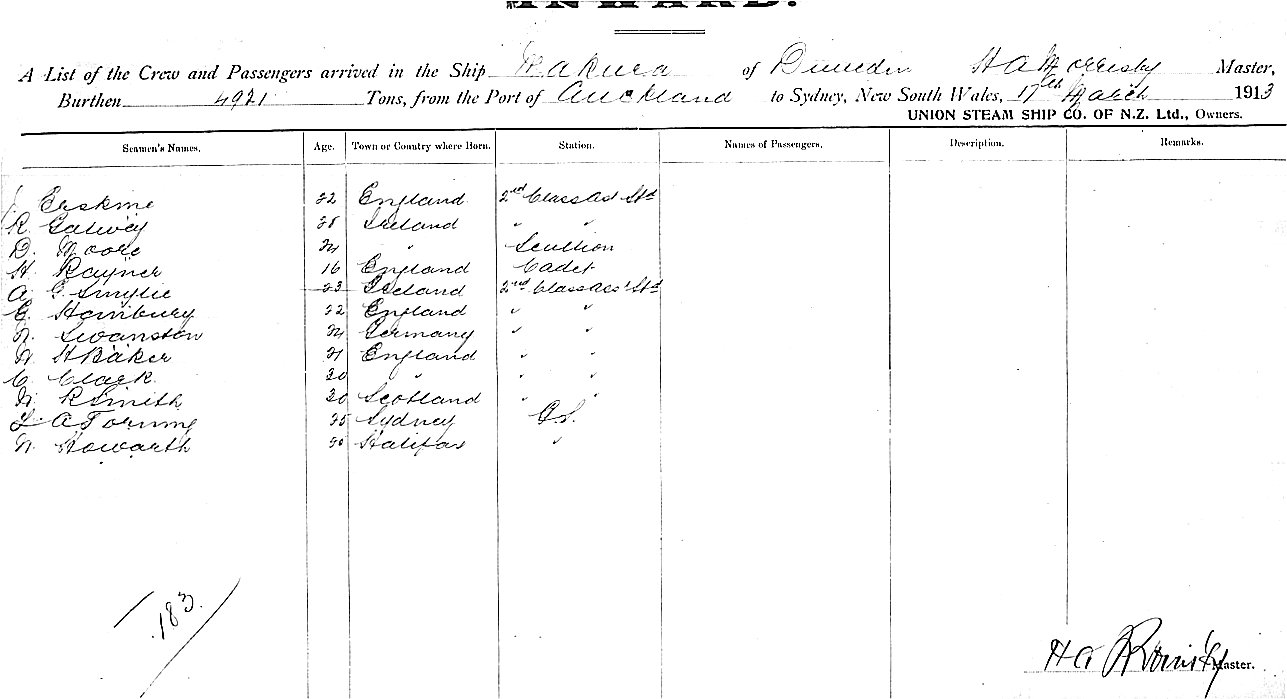 INWARD.
A List of the Crew and Passengers arrived in the Ship Makura of Dunedin H A Morrisby Master,
Burthen 4921 Tons, from the Port of Auckland to Sydney, New South Wales, 17th March 1913
UNION STEAM SHIP CO. OF N.Z. Ltd., Owners.
Seamen's Names. Age. Town or Country where Born. Station. Names of Passengers. Description. Remarks.
J. Erskine 22 England 2nd Class Ast Std
R. Galwey 28 Ireland " "
D. Moore 24 " Scullion
H. Rayner 16 England Cadet
A. G. Smylie 23 Ireland 2nd Class Ast Std
E. Hambury 22 England " "
N. Swanston 24 Germany " "
W. H Baker 21 England " "
C. Clark 30 " " "
W. R Smith 20 Scotland " "
L A 25 Sydney O.S.
W. Howarth 20 Halifax "
183.
H A Morrisby Master.